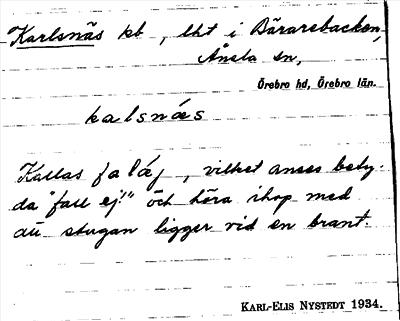 Karlsnäs kb, lht i Bärarebacken,
Ånsta sn,
Örebro hd, Örebro län.
kalsnǽs
Kallas falǽj, vilket anses bety-
da "fall ej!" och höra ihop med
att stugan ligger vid en brant.
KARL-ELIS NYSTEDT 1934.